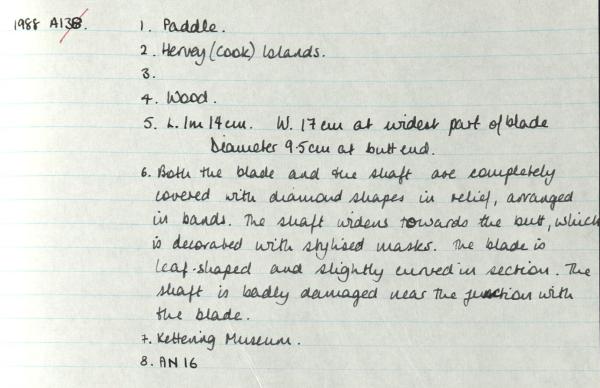 1988 A138. 1. Paddle.
2. Hervey (Cook) Islands.
3.
4. Wood.
5. L. 1m 14cm. W. 17cm at widest part of blade
Diameter 9.5cm at butt end.
6. Both the blade and the shaft are completely
covered with diamond shapes in relief, arranged
in bands. The shaft widens towards the butt, which
is decorated with stylised masks. The blade is
leaf-shaped and slightly curved in section. The
shaft is badly damaged near the junction with
the blade.
7. Kettering Museum.
8. AN16